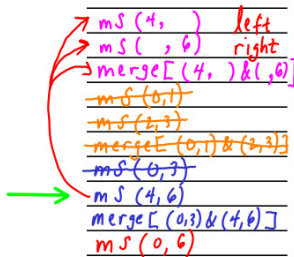 mS (4,   ) left
mS (   , 6) right
merge[ (4,   ) & ( , 6)]
mS (0,1)
mS (2,3)
merge[ (0,1) & (2,3)]
mS (0,3)
mS (4,6)
merge [ (0,3) & (4,6) ]
mS (0, 6)